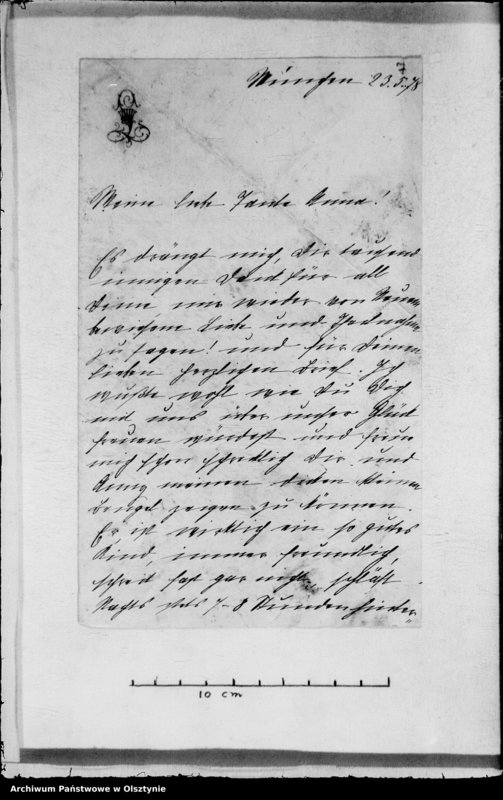 München 23.5.78
Meine liebe Tante Anna!
Es drängt mich, Dir tausend
innigen Dank für all
Deine mir wieder von Neuem
bewiesene Liebe und Theilnahme
zu sagen! und für Deinen
lieben herzlichen Brief. Ich
wußte wohl wie Du Dich
mit uns über unser Glück
freuen würdest und freue
mich schon schrecklich Dir und
Anny meinen dicken kleinen
Bengel zeigen zu können.
Er ist wirklich ein so gutes
Kind, immer freundlich,
schreit fast gar nicht, schläft
Nachts stets 7-8 Stunden hinter
10 cm
Archiwum Państwowe w Olsztynie